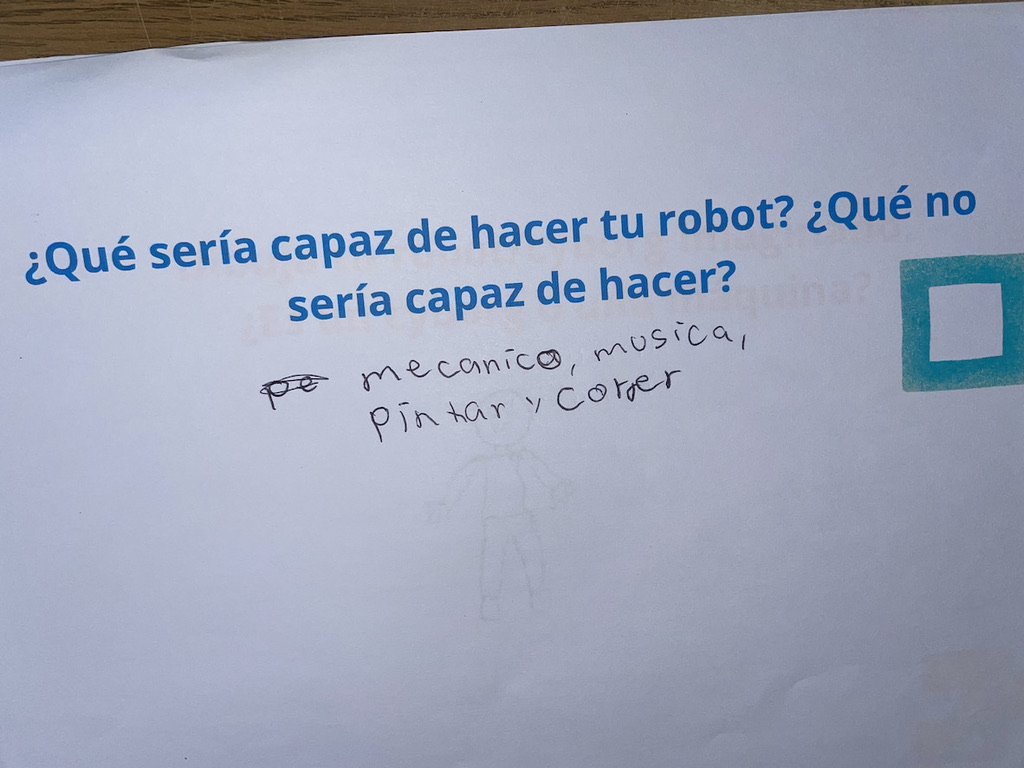 ¿Qué sería capaz de hacer tu robot? ¿Qué no
sería capaz de hacer?
mecanico, musica,
pintar y correr